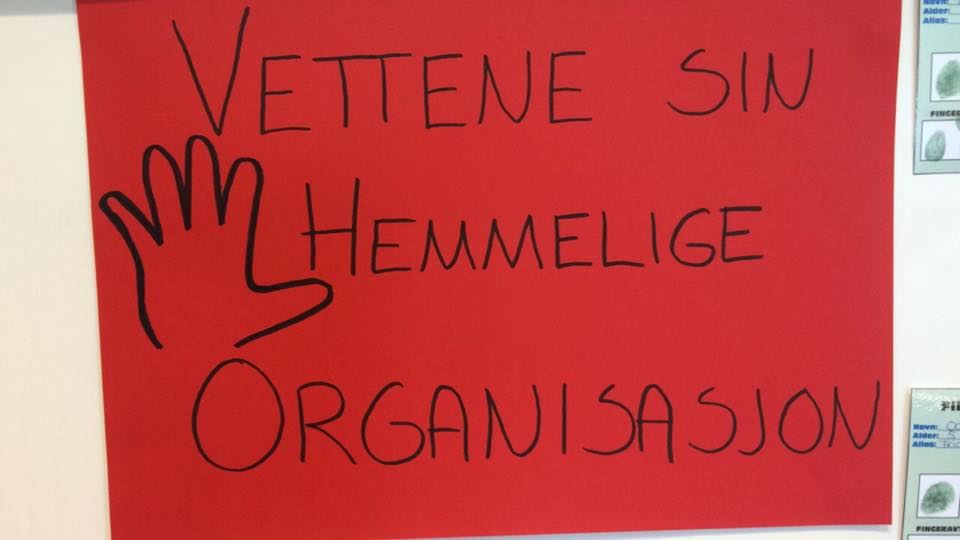 VETTENE SIN
HEMMELIGE
ORGANISASJON
Navn:
Alder:
Alias:
Navn:
Alder: 5
Alias: